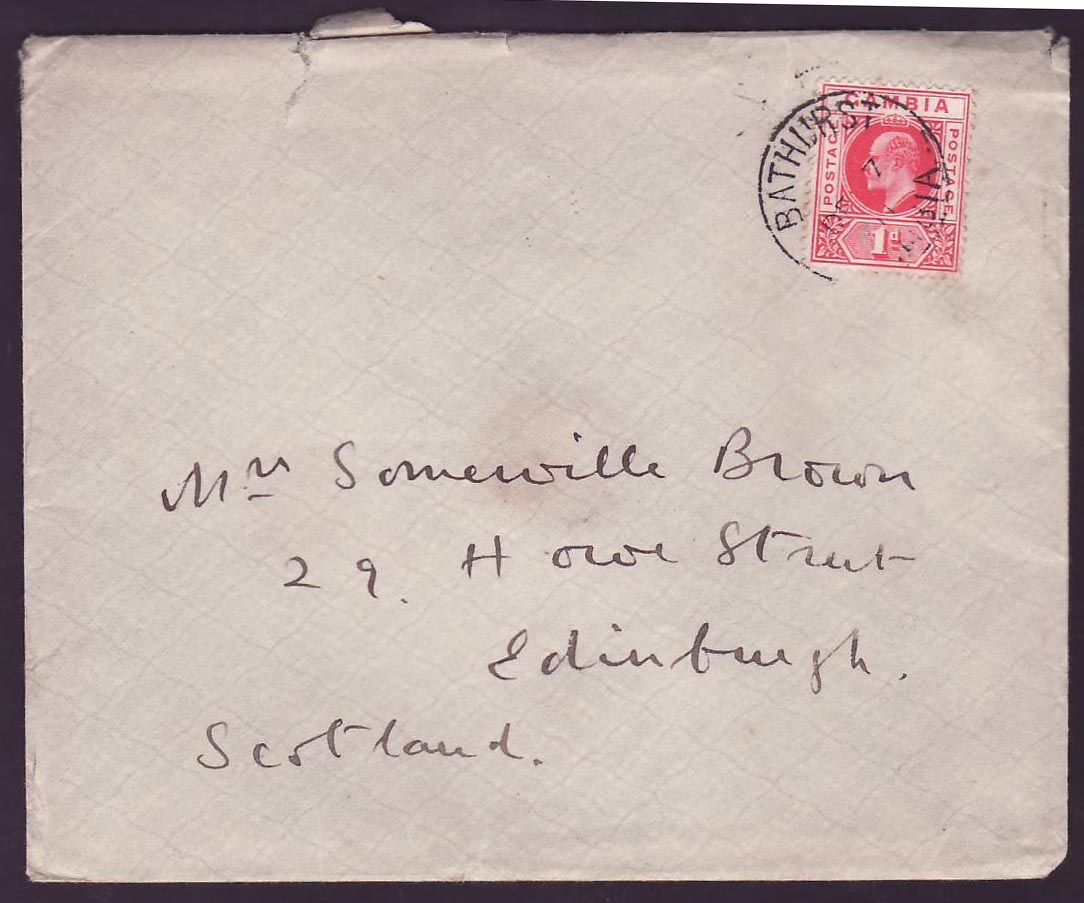 GAMBIA
POSTAGE
POSTAGE
1d
BATHURST
7
Mrs Somerville Brown
29. Howe Street
Edinburgh.
Scotland.